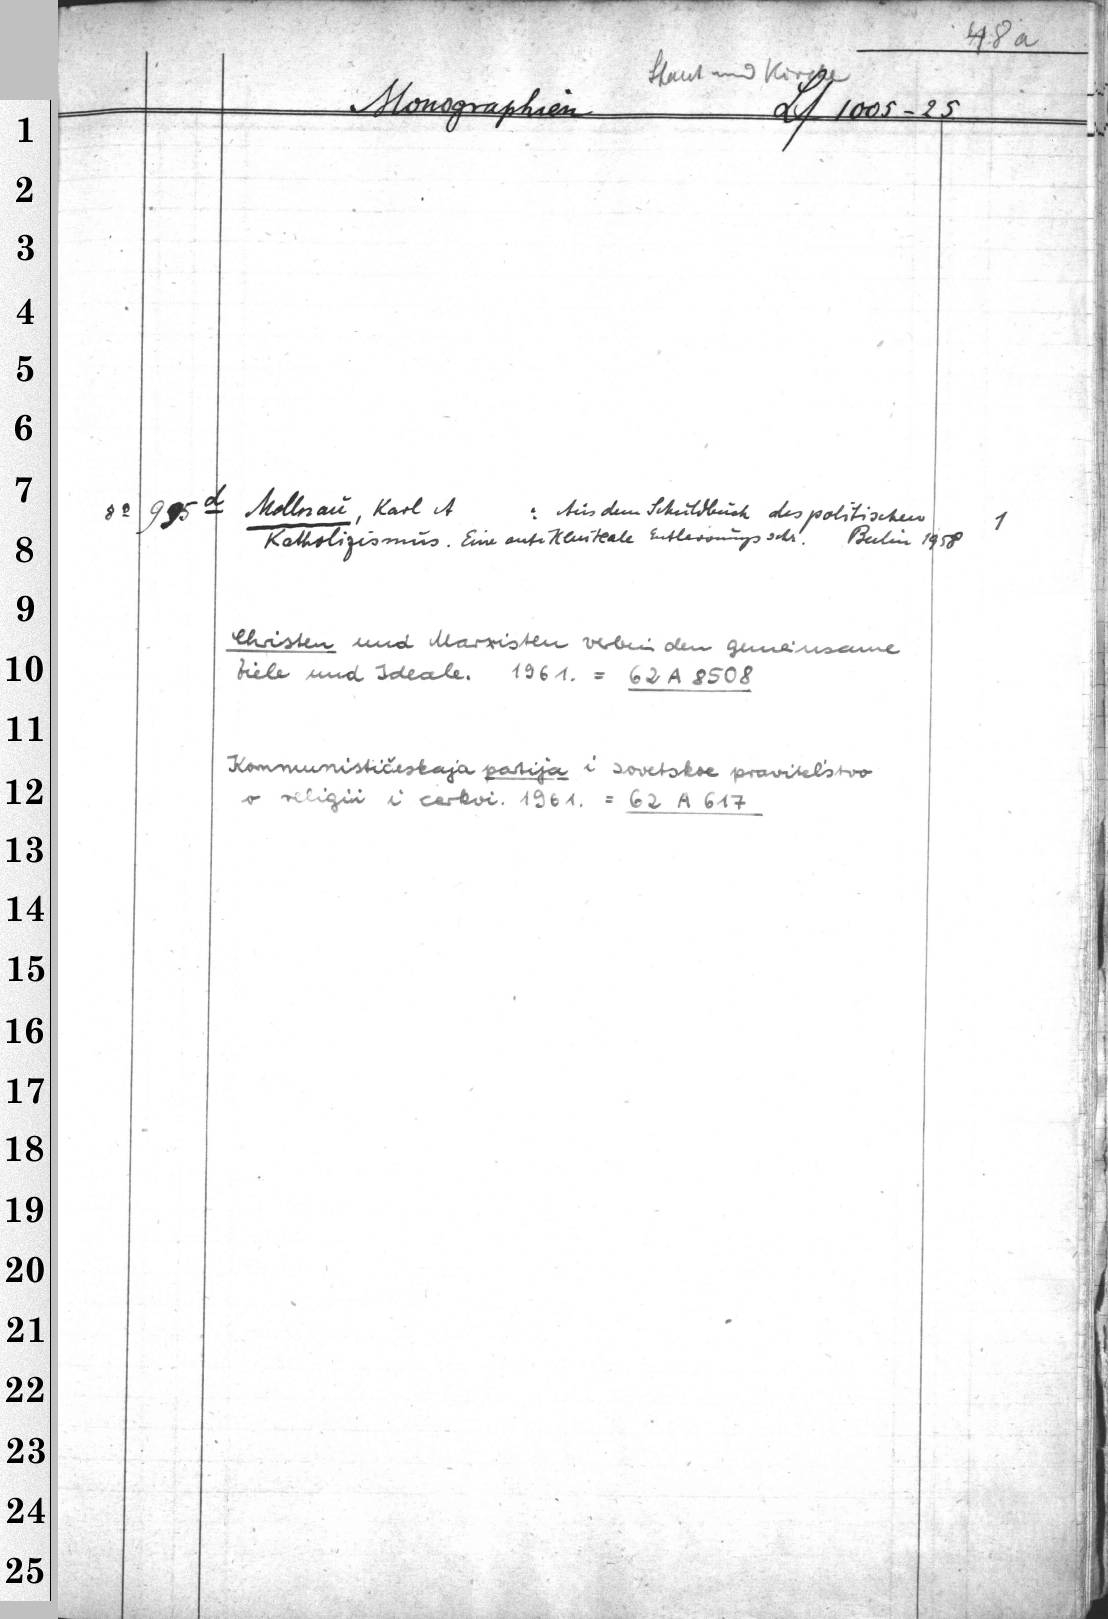 48a
Staat und Kirche
Monographien Lf 1005-25
1
2
3
4
5
6
7
8º 995 d Mollnau, Karl A : Aus dem Schuldbuch des politischen 1
8 Katholizismus. Eine antiklerikale Entlarvungsschr. Berlin 1958
9
Christen und Marxisten verbinden gemeinsame
10 Ziele und Ideale. 1961. = 62 A 8508
11
Kommunističeskaja partija i sovetskoe pravitel'stvo
12 o religii i cerkvi. 1961. = 62 A 617
13
14
15
16
17
18
19
20
21
22
23
24
25